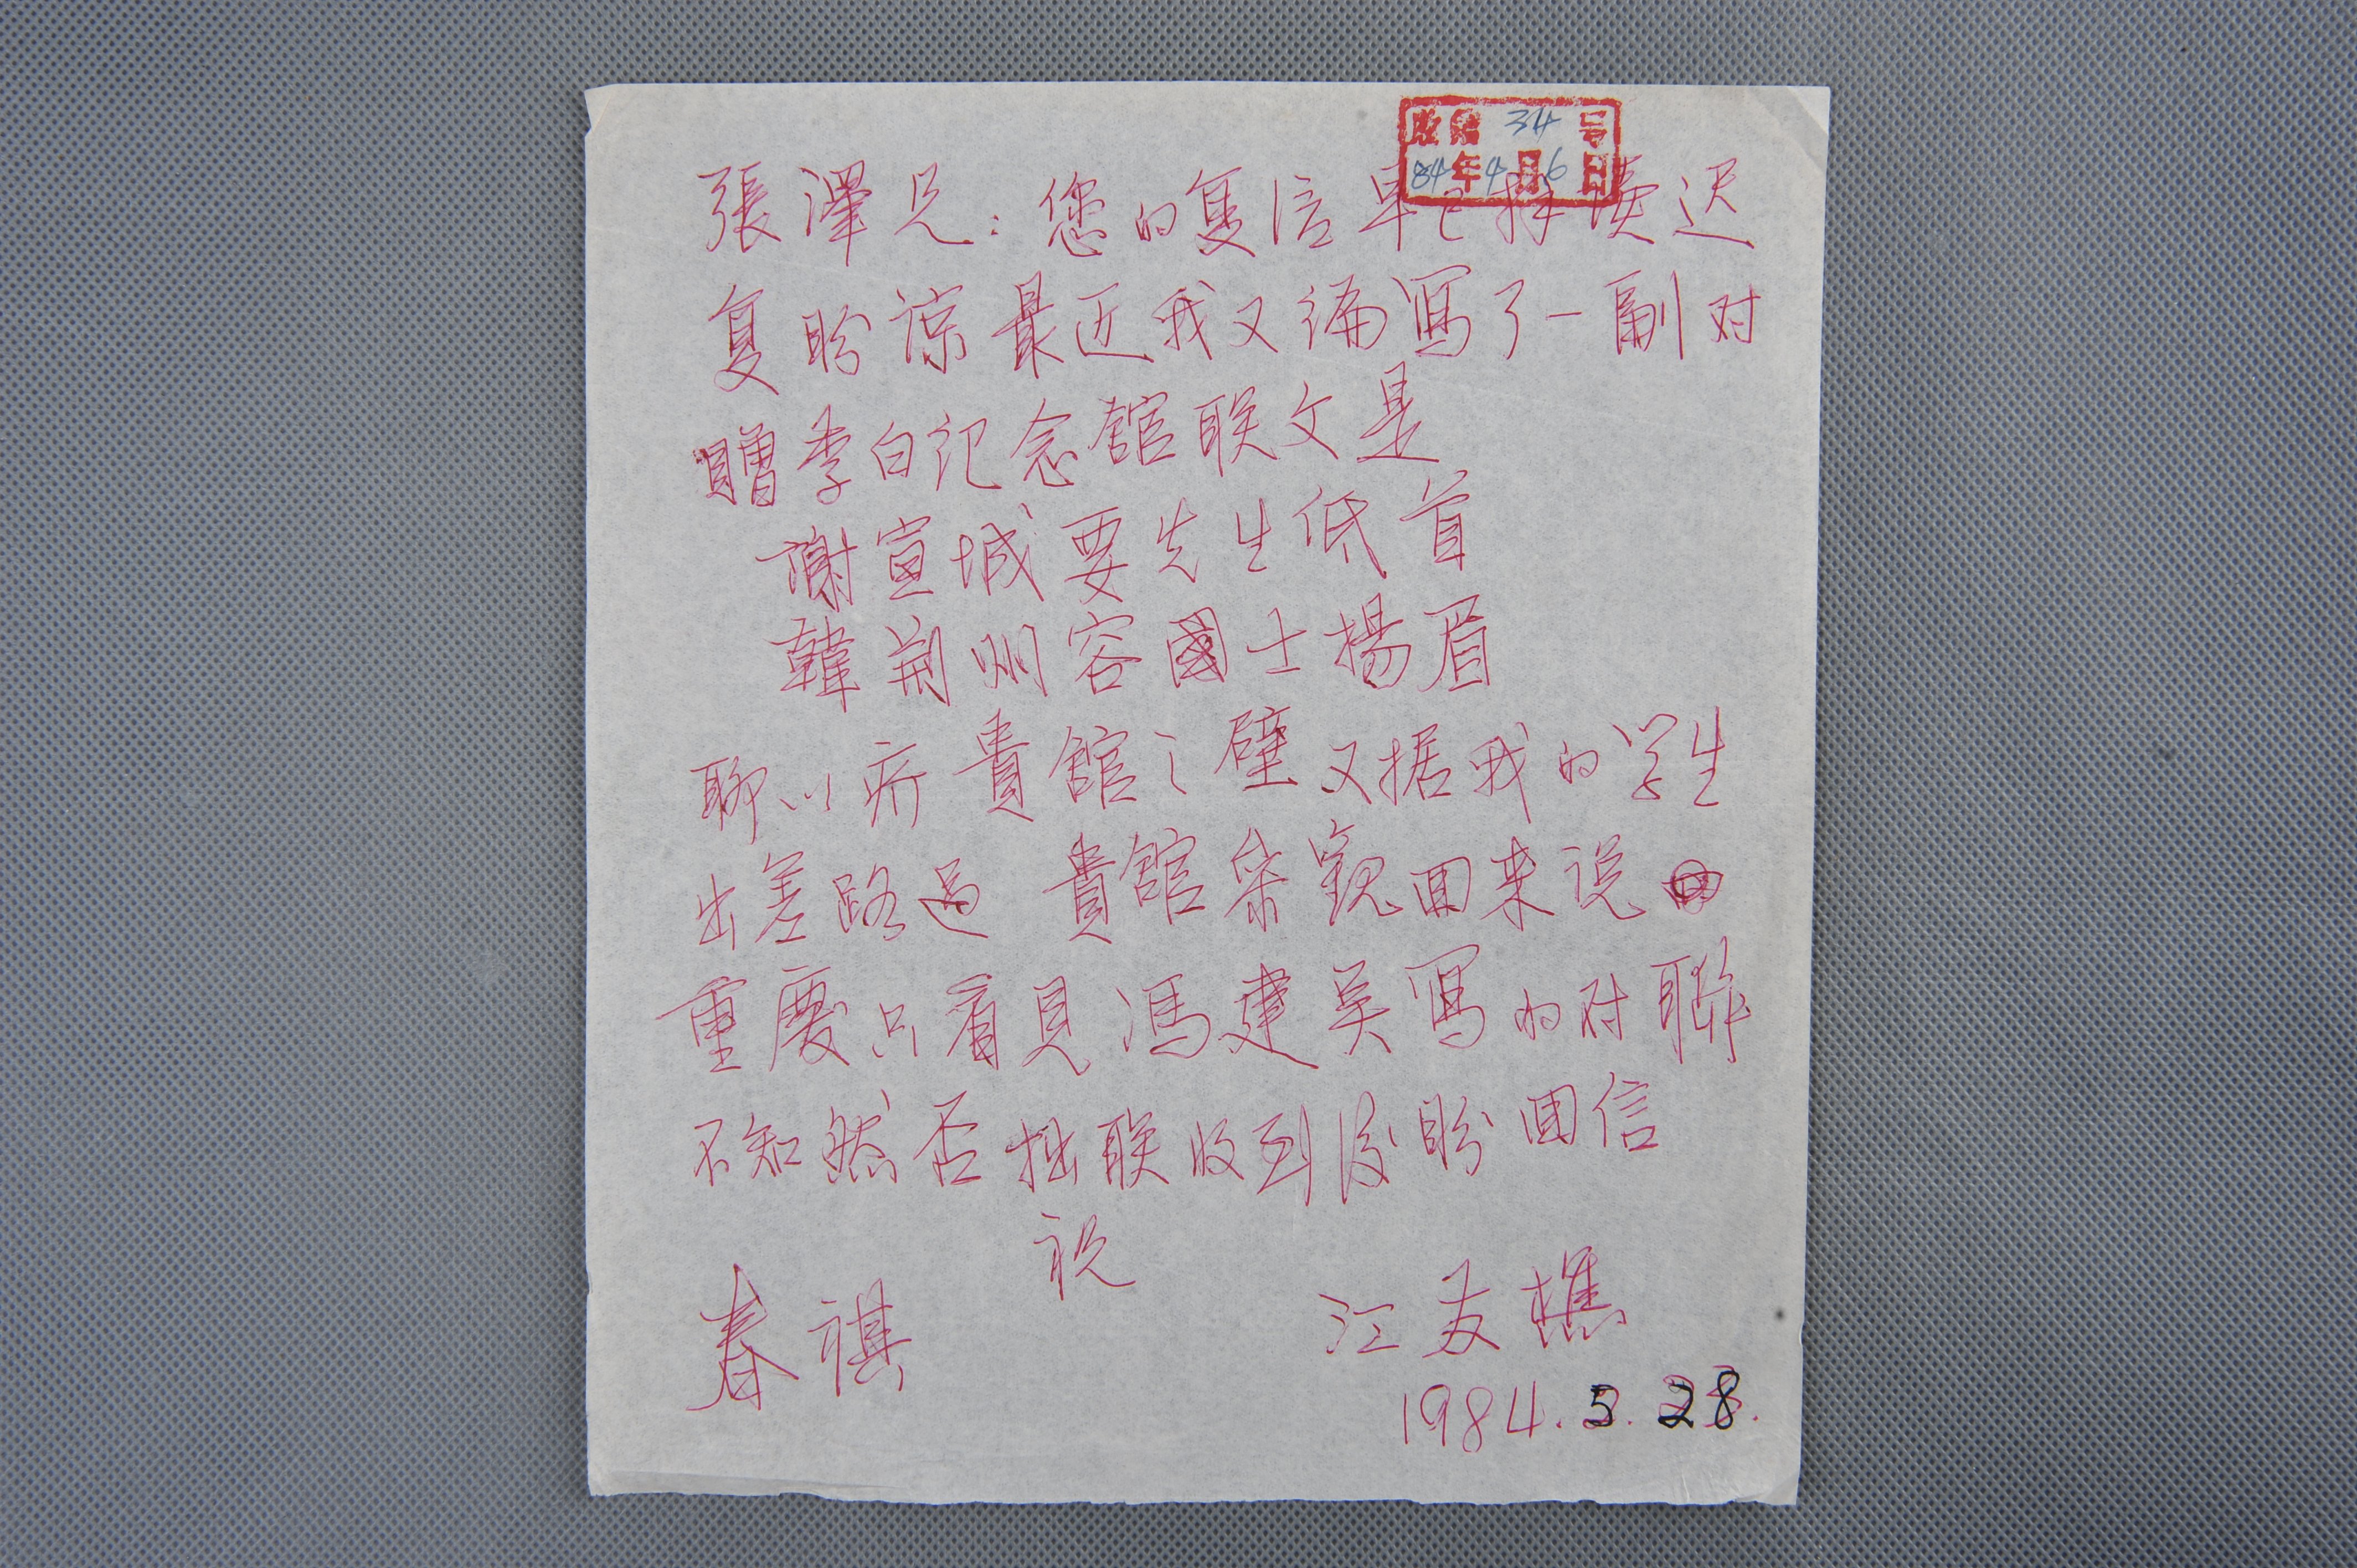 收信 34 号
84年4月6日
張澤兄：您的复信早已拜读迟
复盼谅最近我又编寫了一副对
贈李白记念舘联文是
謝宣城要先生低首
韓荊州容國士揚眉
聊以疥貴舘之壁又据我的学生
出差路过 貴舘参觀回来说
重慶只看見馮建吴寫的对聯
不知然否拙联收到後盼回信
祝
春祺
江友樵
1984.3.28.